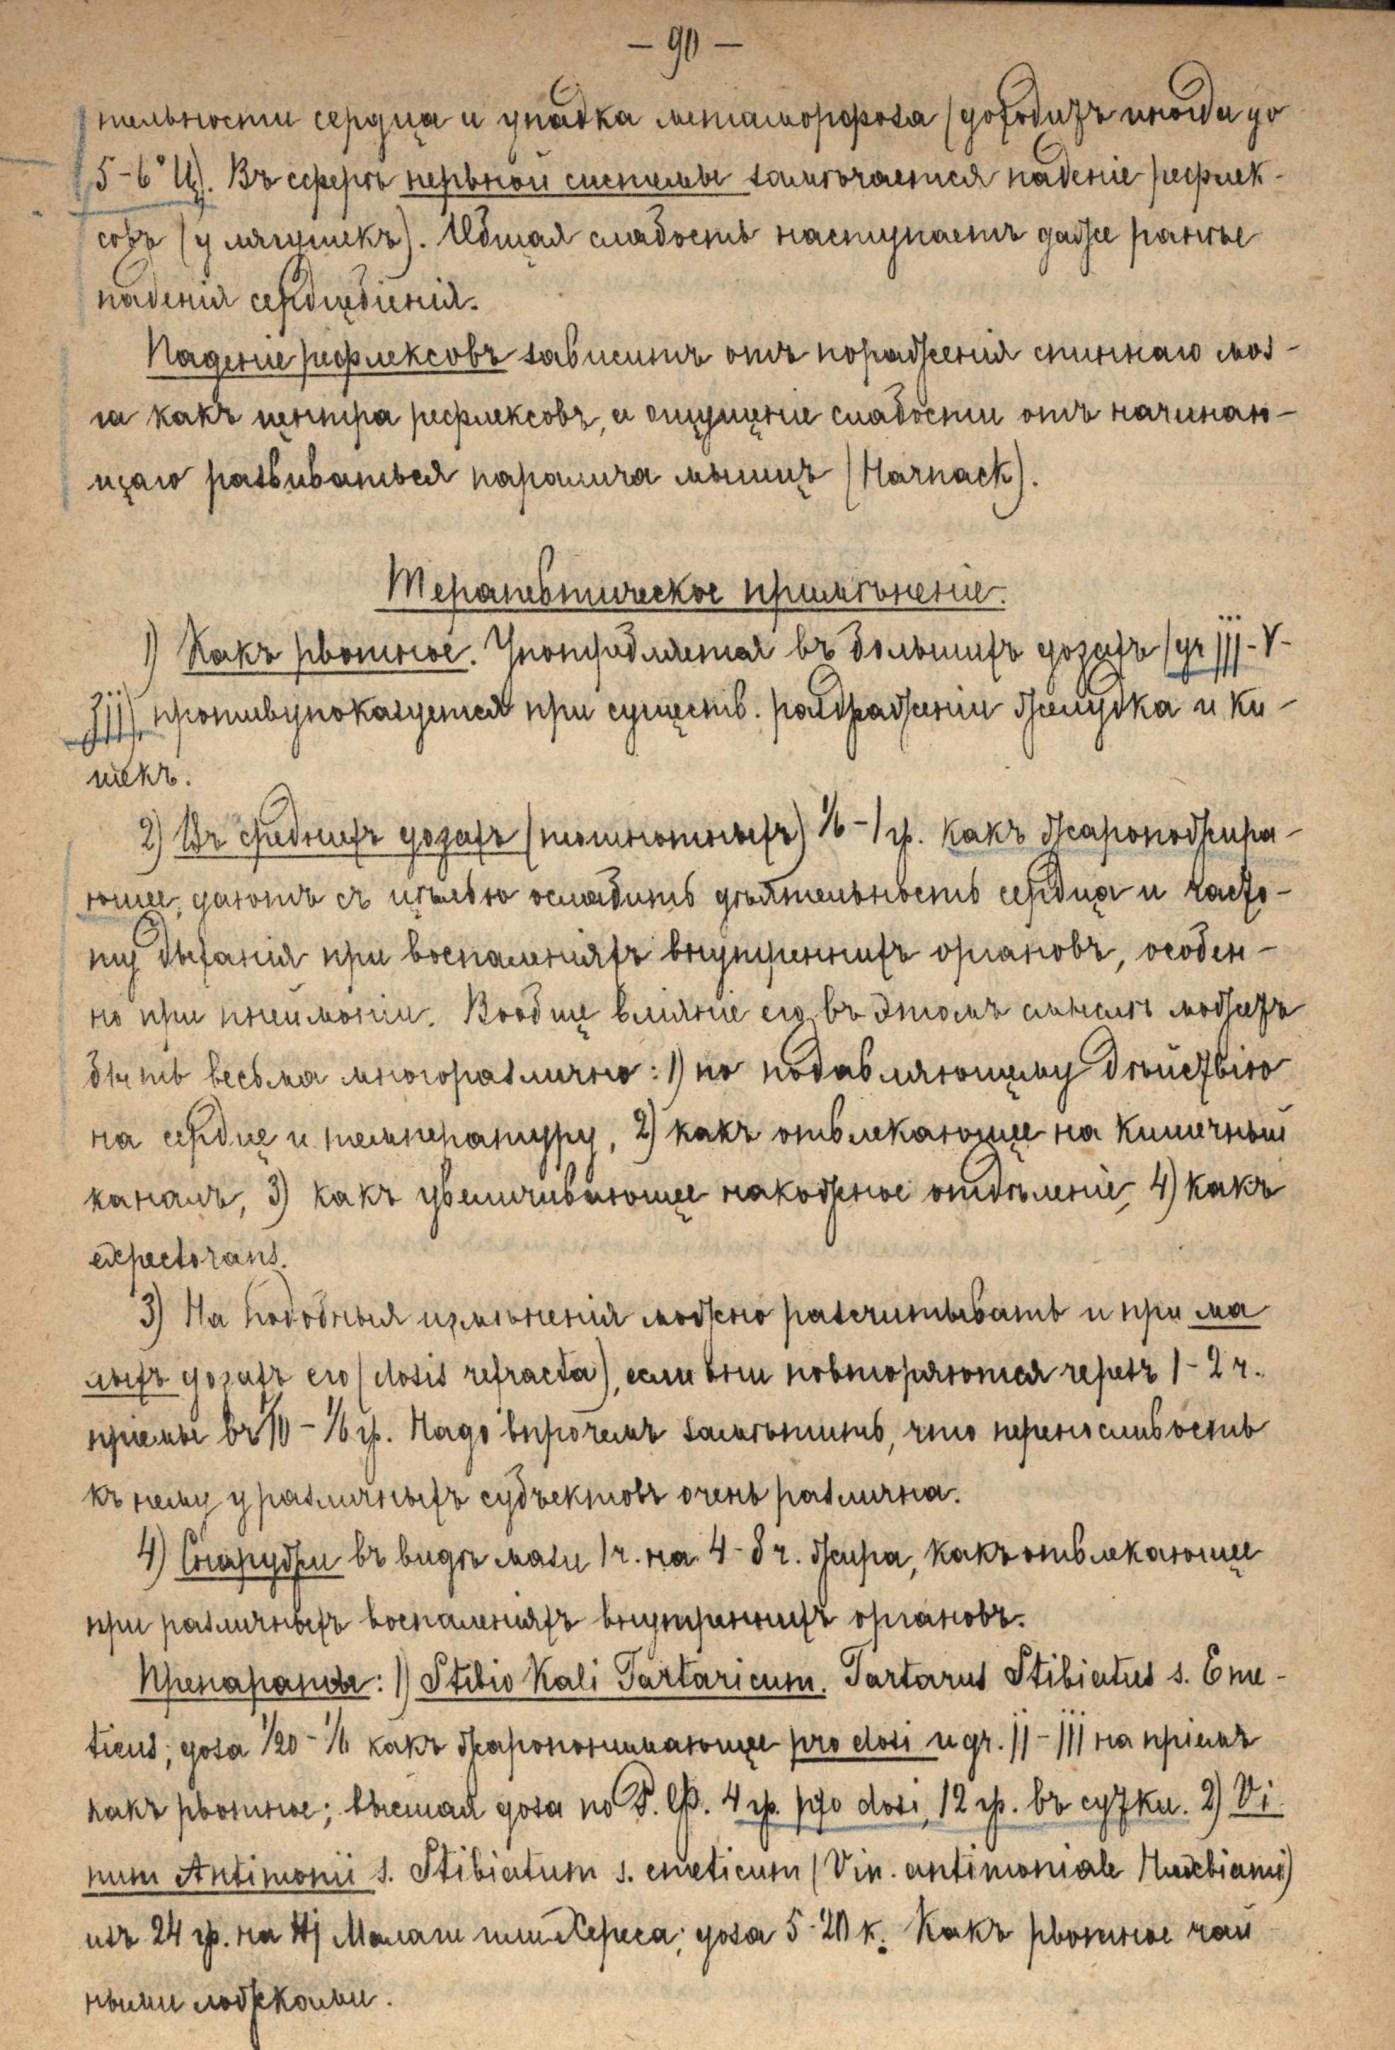 — 90 —
тельности сердца и упадка метаморфоза (доходитъ иногда до
5-6° Ц). Въ сферѣ нервной системы замѣчается паденіе рефлек-
совъ (у лягушекъ). Общая слабость наступаетъ даже ранѣе
паденія сердцебіенія.
Паденіе рефлексовъ зависитъ отъ пораженія спиннаго моз-
га какъ центра рефлексовъ, а ощущеніе слабости отъ начинаю-
щаго развиваться паралича мышцъ (Harnack).
Терапевтическое примѣненіе.
1) Какъ рвотное. Употребляется въ большихъ дозахъ (gr III-V-
ʒij), противупоказуется при существ. раздраженіи желудка и ки-
шекъ.
2) Въ среднихъ дозахъ (тошнотныхъ) 1/6-1 гр. какъ жаропонижа-
ющее, даютъ съ цѣлью ослабить дѣятельность сердца и часто-
ту дыханія при воспаленіяхъ внутреннихъ органовъ, особен-
но при пнеймоніи. Вообще вліяніе его въ этомъ смыслѣ можетъ
быть весьма многоразлично: 1) по подавляющему дѣйствію
на сердце и температуру, 2) какъ отвлекающее на кишечный
каналъ, 3) какъ увеличивающее накожное отдѣленіе, 4) какъ
expectorans.
3) На подобныя измѣненія можно разсчитывать и при ма
лыхъ дозахъ его (dosis refracta), если они повторяются черезъ 1-2 ч.
пріемы въ 1/10-1/6 гр. Надо впрочемъ замѣтить, что переносливость
къ нему у различныхъ субъектовъ очень различна.
4) Снаружи въ видѣ мази 1 ч. на 4-8 ч. жира, какъ отвлекающее
при различныхъ воспаленіяхъ внутреннихъ органовъ.
Препараты: 1) Stibio Kali Tartaricum. Tartarus Stibiatus s. Eme-
ticus; доза 1/20-1/6 какъ жаропонижающее pro dosi и gr. II-III на пріемъ
какъ рвотное; высшая доза по Р. Ф. 4 гр. pro dosi, 12 гр. въ сутки. 2) Vi
num Antimonii s. Stibiatum s. emeticum (Vin. antimoniale Huxchami)
изъ 24 гр. на ℔j Малаги или Хереса; доза 5-20 к. Какъ рвотное чай
ными ложками.